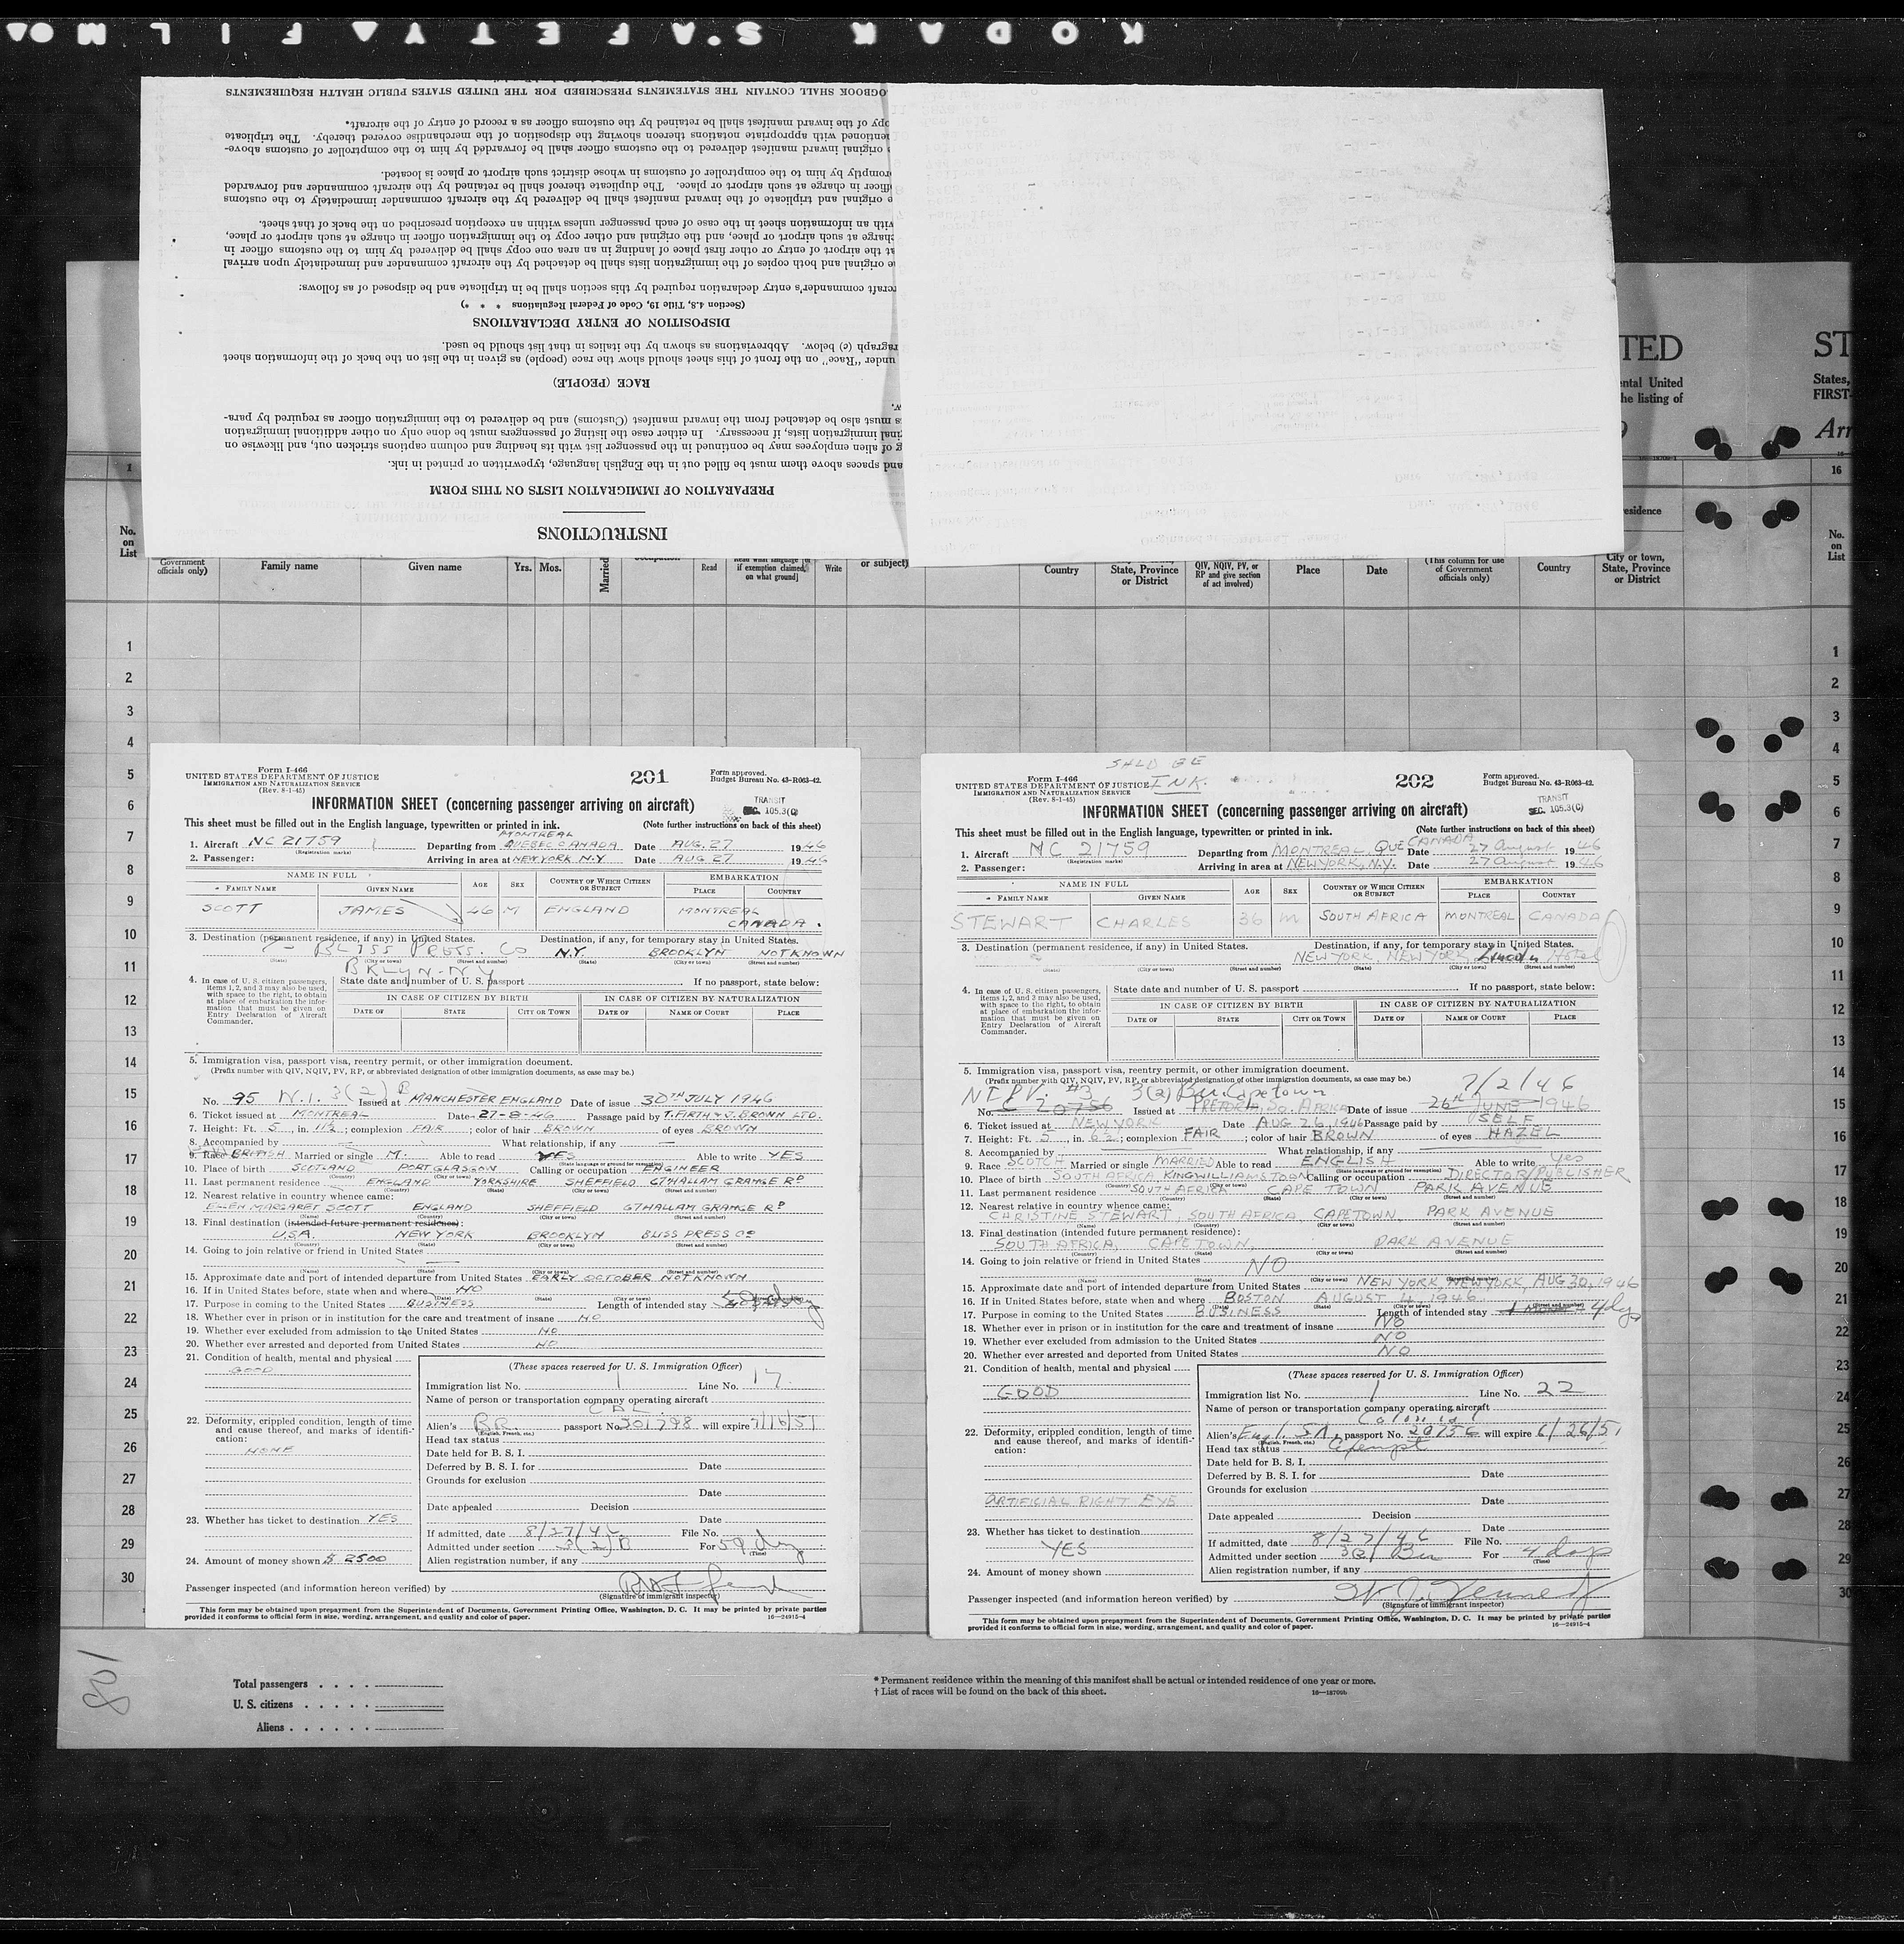 KODAK SAFETY FILM
INSTRUCTIONS
PREPARATION OF IMMIGRATION LISTS ON THIS FORM
and spaces above them must be filled out in the English language, typewritten or printed in ink.
g of alien employees may be continued in the passenger list with its heading and column captions stricken out, and likewise on
inal immigration lists, if necessary. In either case the listing of passengers must be done only on other additional immigration
s must also be detached from the inward manifest (Customs) and be delivered to the immigration officer as required by para-
w.
RACE (PEOPLE)
under "Race" on the front of this sheet should show the race (people) as given in the list on the back of the information sheet
ragraph (c) below. Abbreviations as shown by the italics in that list should be used.
DISPOSITION OF ENTRY DECLARATIONS
(Section 4.8, Title 19, Code of Federal Regulations * * *)
rcraft commander's entry declaration required by this section shall be in triplicate and be disposed of as follows:
e original and both copies of the immigration lists shall be detached by the aircraft commander and immediately upon arrival
at the airport of entry or other first place of landing in an area one copy shall be delivered by him to the customs officer in
charge at such airport or place, and the original and other copy to the immigration officer in charge at such airport or place,
with an information sheet in the case of each passenger unless within an exception prescribed on the back of that sheet.
e original and triplicate of the inward manifest shall be delivered by the aircraft commander immediately to the customs
officer in charge at such airport or place. The duplicate thereof shall be retained by the aircraft commander and forwarded
promptly by him to the comptroller of customs in whose district such airport or place is located.
e original inward manifest delivered to the customs officer shall be forwarded by him to the comptroller of customs above-
mentioned with appropriate notations thereon showing the disposition of the merchandise covered thereby. The triplicate
opy of the inward manifest shall be retained by the customs officer as a record of entry of the aircraft.
LOGBOOK SHALL CONTAIN THE STATEMENTS PRESCRIBED FOR THE UNITED STATES PUBLIC HEALTH REQUIREMENTS
TED ST
ental United States,
he listing of FIRST-
Arr
1 16
No. on List
Government officials only)
Family name Given name Yrs. Mos. Married Read if exemption claimed, on what ground] Write or subject)
Country State, Province or District QIV, NQIV, PV, or RP and give section of act involved) Place Date (This column for use of Government officials only) Country City or town, State, Province or District
residence
No. on List
Form I-466
UNITED STATES DEPARTMENT OF JUSTICE
IMMIGRATION AND NATURALIZATION SERVICE
(Rev. 8-1-45)
201
Form approved.
Budget Bureau No. 43-R063-42.
INFORMATION SHEET (concerning passenger arriving on aircraft)
TRANSIT
SEC. 105.3(C)
This sheet must be filled out in the English language, typewritten or printed in ink. (Note further instructions on back of this sheet)
MONTREAL
1. Aircraft NC 21759 (Registration marks) Departing from QUEBEC CANADA Date AUG. 27 1946
2. Passenger: Arriving in area at NEW YORK N.Y Date AUG 27 1946
NAME IN FULL AGE SEX COUNTRY OF WHICH CITIZEN OR SUBJECT EMBARKATION
FAMILY NAME GIVEN NAME PLACE COUNTRY
SCOTT JAMES 46 M ENGLAND MONTREAL CANADA
3. Destination (permanent residence, if any) in United States. Destination, if any, for temporary stay in United States.
BLISS PRESS. CO N.Y. BROOKLYN NOT KNOWN
(State) (City or town) (Street and number) (State) (City or town) (Street and number)
BKLYN-NY
4. In case of U. S. citizen passengers, items 1, 2, and 3 may also be used, with space to the right, to obtain at place of embarkation the information that must be given on Entry Declaration of Aircraft Commander.
State date and number of U. S. passport If no passport, state below:
IN CASE OF CITIZEN BY BIRTH IN CASE OF CITIZEN BY NATURALIZATION
DATE OF STATE CITY OR TOWN DATE OF NAME OF COURT PLACE
5. Immigration visa, passport visa, reentry permit, or other immigration document.
(Prefix number with QIV, NQIV, PV, RP, or abbreviated designation of other immigration documents, as case may be.)
No. 95 N.I. 3(2) B Issued at MANCHESTER ENGLAND Date of issue 30TH JULY 1946
6. Ticket issued at MONTREAL Date 27-8-46 Passage paid by T. FIRTH & J. BROWN LTD.
7. Height: Ft. 5, in. 11½; complexion FAIR; color of hair BROWN of eyes BROWN
8. Accompanied by What relationship, if any
9. Race BRITISH Married or single M. Able to read YES Able to write YES
(State language or ground for exemption)
10. Place of birth SCOTLAND PORT GLASGOW Calling or occupation ENGINEER
11. Last permanent residence ENGLAND YORKSHIRE SHEFFIELD 67 HALLAM GRANGE RD
12. Nearest relative in country whence came:
ELLEN MARGARET SCOTT ENGLAND SHEFFIELD 67 HALLAM GRANGE RD
13. Final destination (intended future permanent residence):
U.S.A. NEW YORK BROOKLYN BLISS PRESS CO
14. Going to join relative or friend in United States
15. Approximate date and port of intended departure from United States EARLY OCTOBER NOT KNOWN
16. If in United States before, state when and where NO
17. Purpose in coming to the United States BUSINESS Length of intended stay
18. Whether ever in prison or in institution for the care and treatment of insane NO
19. Whether ever excluded from admission to the United States NO
20. Whether ever arrested and deported from United States NO
21. Condition of health, mental and physical
GOOD
22. Deformity, crippled condition, length of time and cause thereof, and marks of identification:
NONE
23. Whether has ticket to destination YES
24. Amount of money shown $ 2500
(These spaces reserved for U. S. Immigration Officer)
Immigration list No. 1 Line No. 17.
Name of person or transportation company operating aircraft
CAL
Alien's BR. passport No. 301798 will expire 7/16/51
(English, French, etc.)
Head tax status
Date held for B. S. I.
Deferred by B. S. I. for Date
Grounds for exclusion
Date
Date appealed Decision
Date
If admitted, date 8/27/46 File No.
Admitted under section 3(2)B For 59 dy
(Time)
Alien registration number, if any
Passenger inspected (and information hereon verified) by
(Signature of immigrant inspector)
This form may be obtained upon prepayment from the Superintendent of Documents, Government Printing Office, Washington, D. C. It may be printed by private parties
provided it conforms to official form in size, wording, arrangement, and quality and color of paper. 16—24915-4
SHLD BE
INK.
Form I-466
UNITED STATES DEPARTMENT OF JUSTICE
IMMIGRATION AND NATURALIZATION SERVICE
(Rev. 8-1-45)
202
Form approved.
Budget Bureau No. 43-R063-42.
INFORMATION SHEET (concerning passenger arriving on aircraft)
TRANSIT
SEC. 105.3(C)
This sheet must be filled out in the English language, typewritten or printed in ink. (Note further instructions on back of this sheet)
1. Aircraft NC 21759 (Registration marks) Departing from MONTREAL, QUE CANADA Date 27 August 1946
2. Passenger: Arriving in area at NEW YORK, N.Y. Date 27 August 1946
NAME IN FULL AGE SEX COUNTRY OF WHICH CITIZEN OR SUBJECT EMBARKATION
FAMILY NAME GIVEN NAME PLACE COUNTRY
STEWART CHARLES 36 M SOUTH AFRICA MONTREAL CANADA
3. Destination (permanent residence, if any) in United States. Destination, if any, for temporary stay in United States.
NEW YORK, NEW YORK, Lincoln Hotel
(State) (City or town) (Street and number) (State) (City or town) (Street and number)
4. In case of U. S. citizen passengers, items 1, 2, and 3 may also be used, with space to the right, to obtain at place of embarkation the information that must be given on Entry Declaration of Aircraft Commander.
State date and number of U. S. passport If no passport, state below:
IN CASE OF CITIZEN BY BIRTH IN CASE OF CITIZEN BY NATURALIZATION
DATE OF STATE CITY OR TOWN DATE OF NAME OF COURT PLACE
5. Immigration visa, passport visa, reentry permit, or other immigration document.
(Prefix number with QIV, NQIV, PV, RP, or abbreviated designation of other immigration documents, as case may be.)
NIPV. #3 3(2) Capetown 7/2/46
No. C 20756 Issued at PRETORIA, SO. AFRICA Date of issue 26th JUNE 1946
6. Ticket issued at NEW YORK Date AUG 26, 1946 Passage paid by SELF
7. Height: Ft. 5, in. 6½; complexion FAIR; color of hair BROWN of eyes HAZEL
8. Accompanied by What relationship, if any
9. Race SCOTCH Married or single MARRIED Able to read ENGLISH Able to write yes
10. Place of birth SOUTH AFRICA, KINGWILLIAMSTOWN Calling or occupation DIRECTOR/PUBLISHER
11. Last permanent residence SOUTH AFRICA CAPE TOWN PARK AVENUE
12. Nearest relative in country whence came:
CHRISTINE STEWART, SOUTH AFRICA, CAPETOWN, PARK AVENUE
13. Final destination (intended future permanent residence):
SOUTH AFRICA, CAPE TOWN, PARK AVENUE
14. Going to join relative or friend in United States
NO
15. Approximate date and port of intended departure from United States NEW YORK, NEW YORK, AUG 30, 1946
16. If in United States before, state when and where BOSTON AUGUST 4, 1946
17. Purpose in coming to the United States BUSINESS Length of intended stay 4 dys
18. Whether ever in prison or in institution for the care and treatment of insane NO
19. Whether ever excluded from admission to the United States NO
20. Whether ever arrested and deported from United States NO
21. Condition of health, mental and physical
GOOD
22. Deformity, crippled condition, length of time and cause thereof, and marks of identification:
ARTIFICIAL RIGHT EYE
23. Whether has ticket to destination
YES
24. Amount of money shown
(These spaces reserved for U. S. Immigration Officer)
Immigration list No. 1 Line No. 22
Name of person or transportation company operating aircraft
Colonial
Alien's Engl. SA. passport No. 20756 will expire 6/26/51
(English, French, etc.)
Head tax status Exempt
Date held for B. S. I.
Deferred by B. S. I. for Date
Grounds for exclusion
Date
Date appealed Decision
Date
If admitted, date 8/27/46 File No.
Admitted under section 3(2) For 4 days
(Time)
Alien registration number, if any
Passenger inspected (and information hereon verified) by
(Signature of immigrant inspector)
This form may be obtained upon prepayment from the Superintendent of Documents, Government Printing Office, Washington, D. C. It may be printed by private parties
provided it conforms to official form in size, wording, arrangement, and quality and color of paper. 16—24915-4
801
Total passengers . . . .
U. S. citizens . . . . .
Aliens . . . . . .
* Permanent residence within the meaning of this manifest shall be actual or intended residence of one year or more.
† List of races will be found on the back of this sheet.